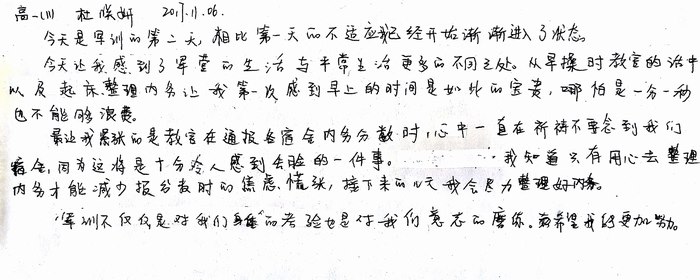 高一(1) 杜 妍 2017.11.06.
今天是军训的第二天,相比第一天的不适应我已经开始渐渐进入了状态。
今天让我感到了军营的生活与平常生活更多的不同之处。从早操时教官的话中
以及起床整理内务让我第一次感到早上的时间是如此的宝贵,哪怕是一分一秒
也不能够浪费。
最让我紧张的是教官在通报各宿舍内务分数时,心中一直在祈祷不要念到我们
宿舍,因为这将是十分令人感到丢脸的一件事。 我知道只有用心去整理
内务才能减少报分数时的焦虑、慌张,接下来的几天我会尽力整理好内务。
军训不仅仅是对我们 的考验也是对我们意志的磨练。希望我能更加努力。